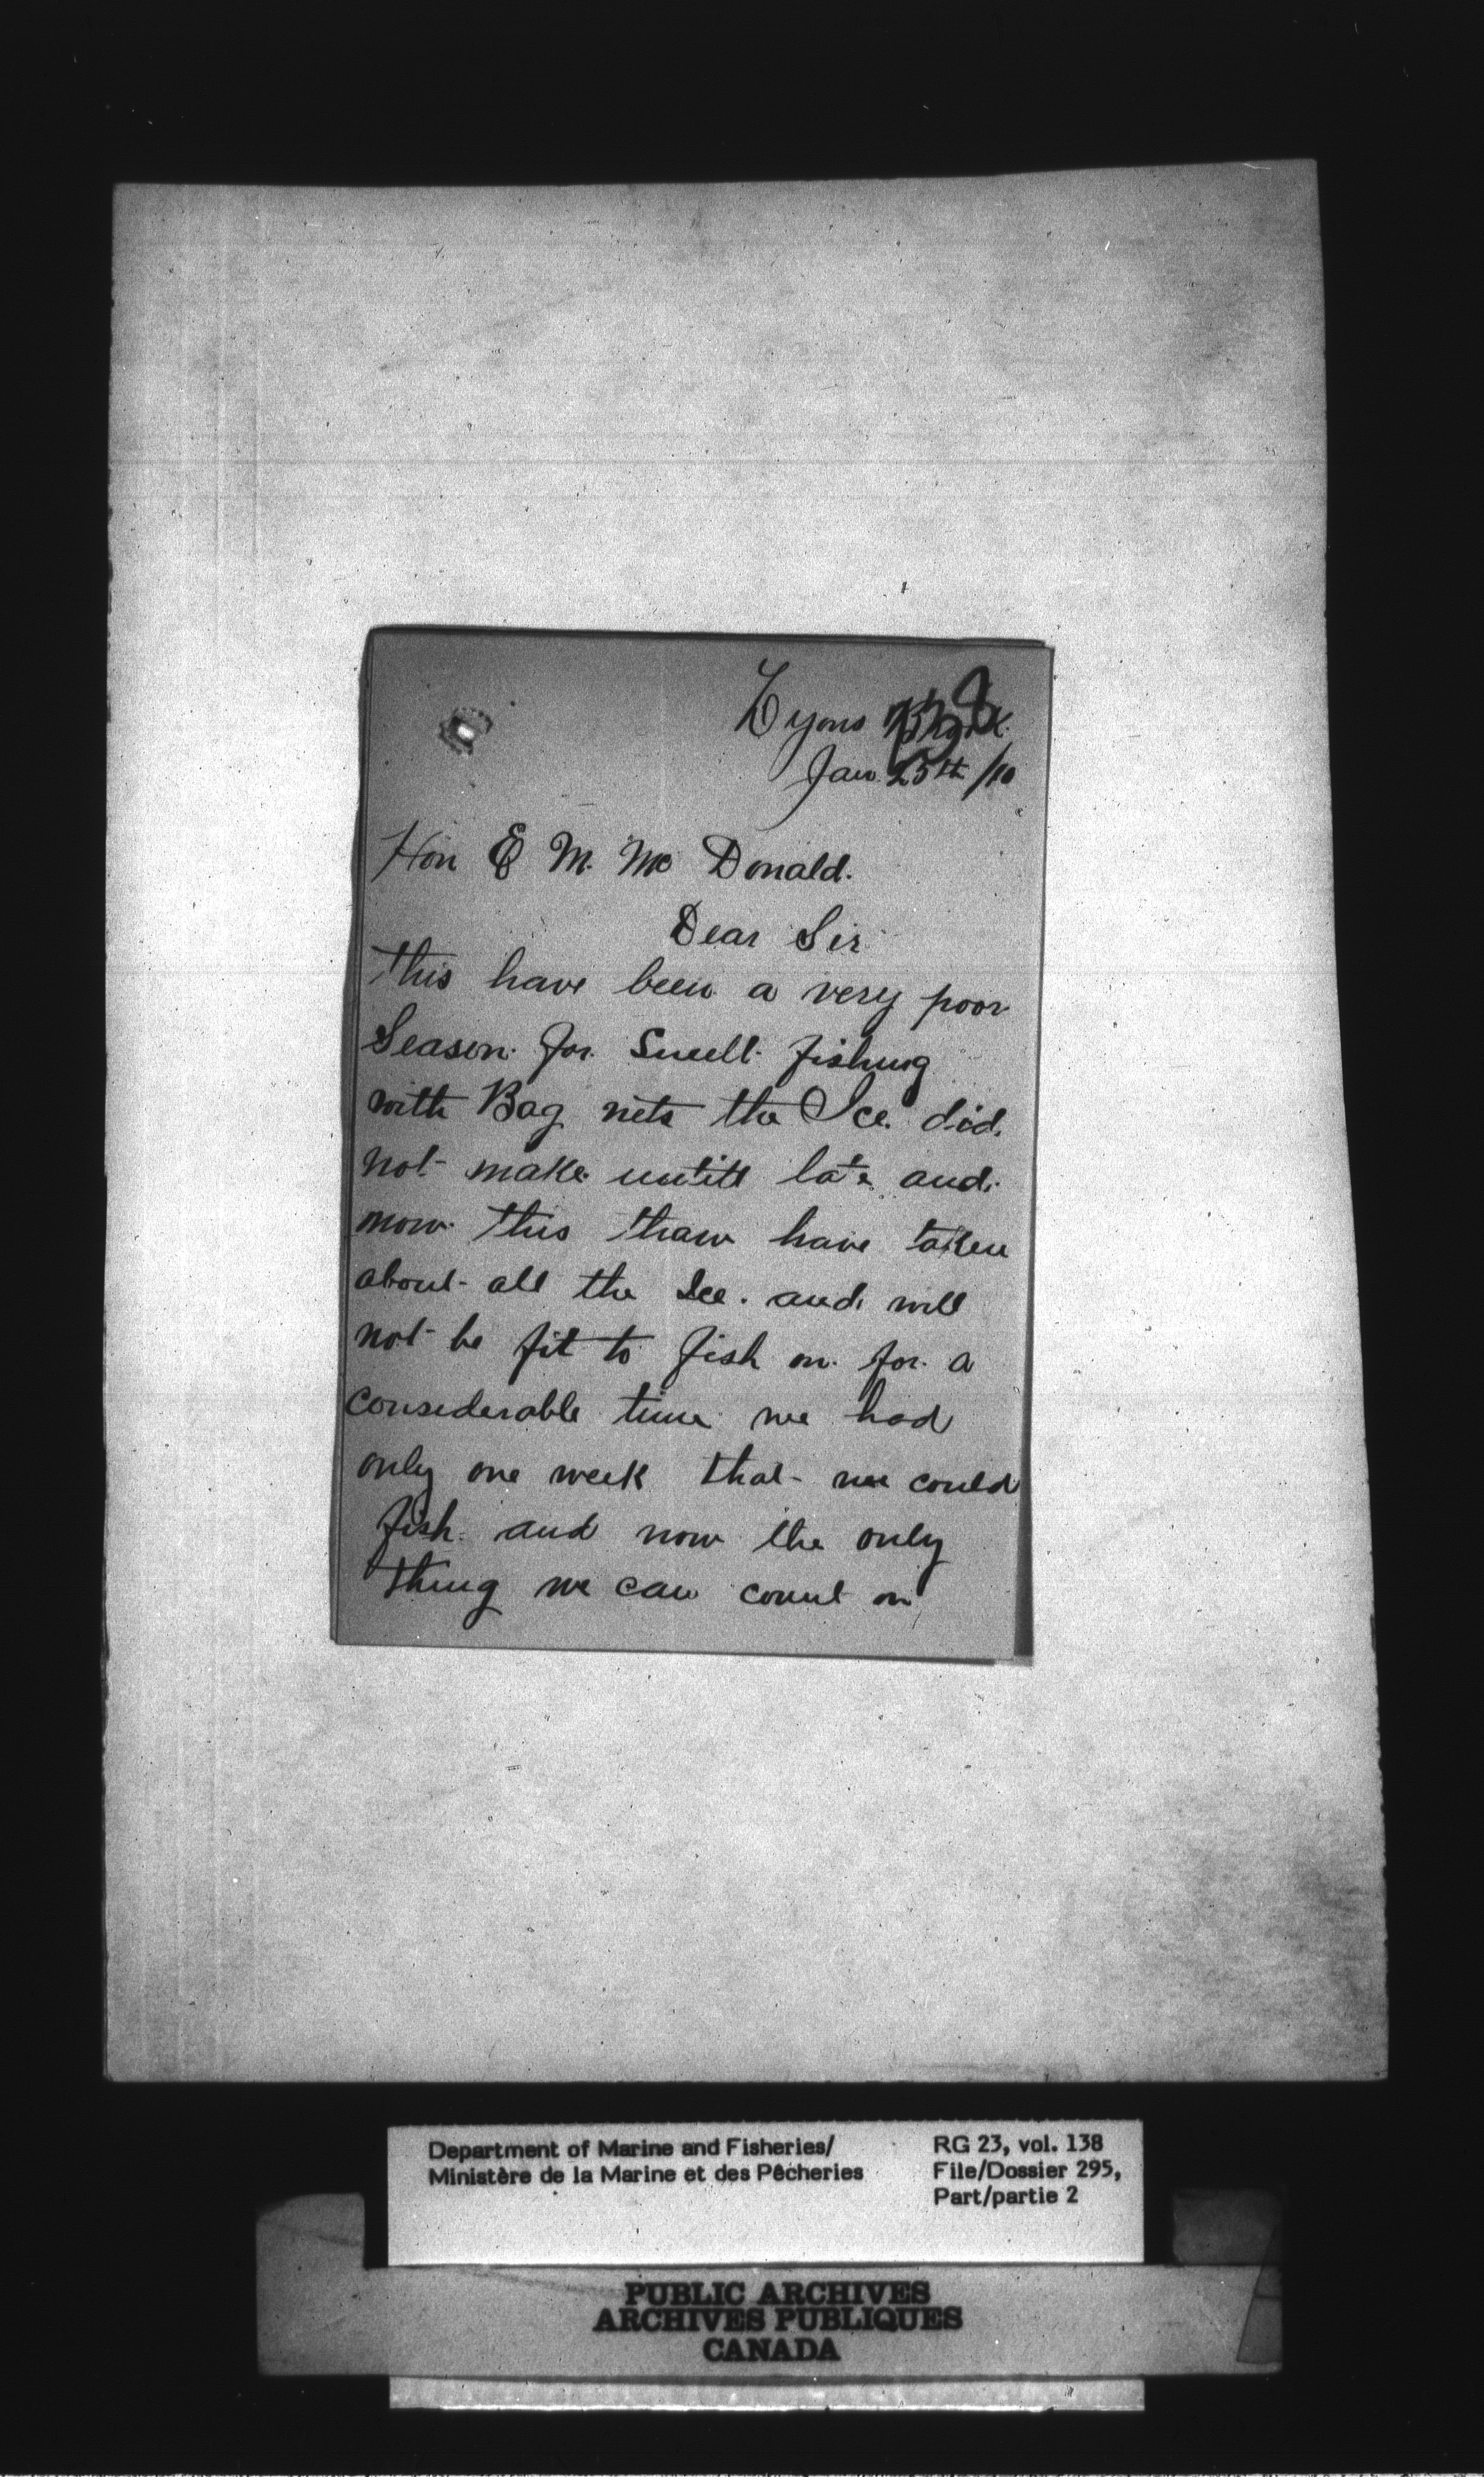 Lyons Brook
Jan 25th /10
Hon E M. Mc Donald.
Dear Sir
This have been a very poor
Season for Smelt fishing
with Bag nets the Ice did
not make untill late and
now this thaw have taken
about all the Ice. and will
not be fit to fish on for a
considerable time we had
only one week that we could
fish and now the only
thing we can count on
Department of Marine and Fisheries/
Ministère de la Marine et des Pêcheries
RG 23, vol. 138
File/Dossier 295,
Part/partie 2
PUBLIC ARCHIVES
ARCHIVES PUBLIQUES
CANADA